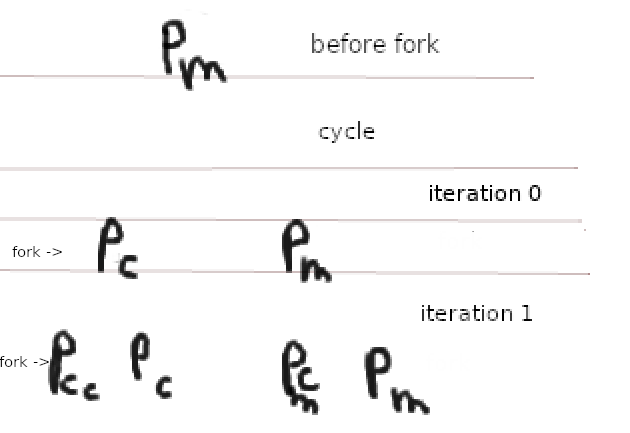 Pm before fork
cycle
iteration 0
fork -> Pc Pm
iteration 1
fork -> Pcc Pc Pcm Pm